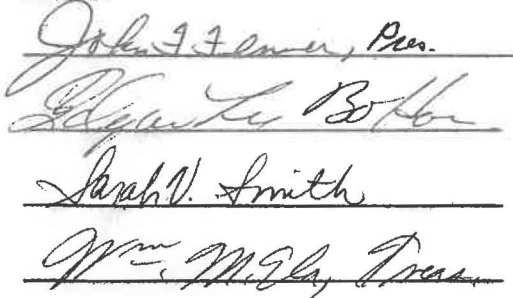 John F Fenner, Pres.
Edgar Lee Bolton
Sarah V. Smith
Wm. M. Ela, Treas.